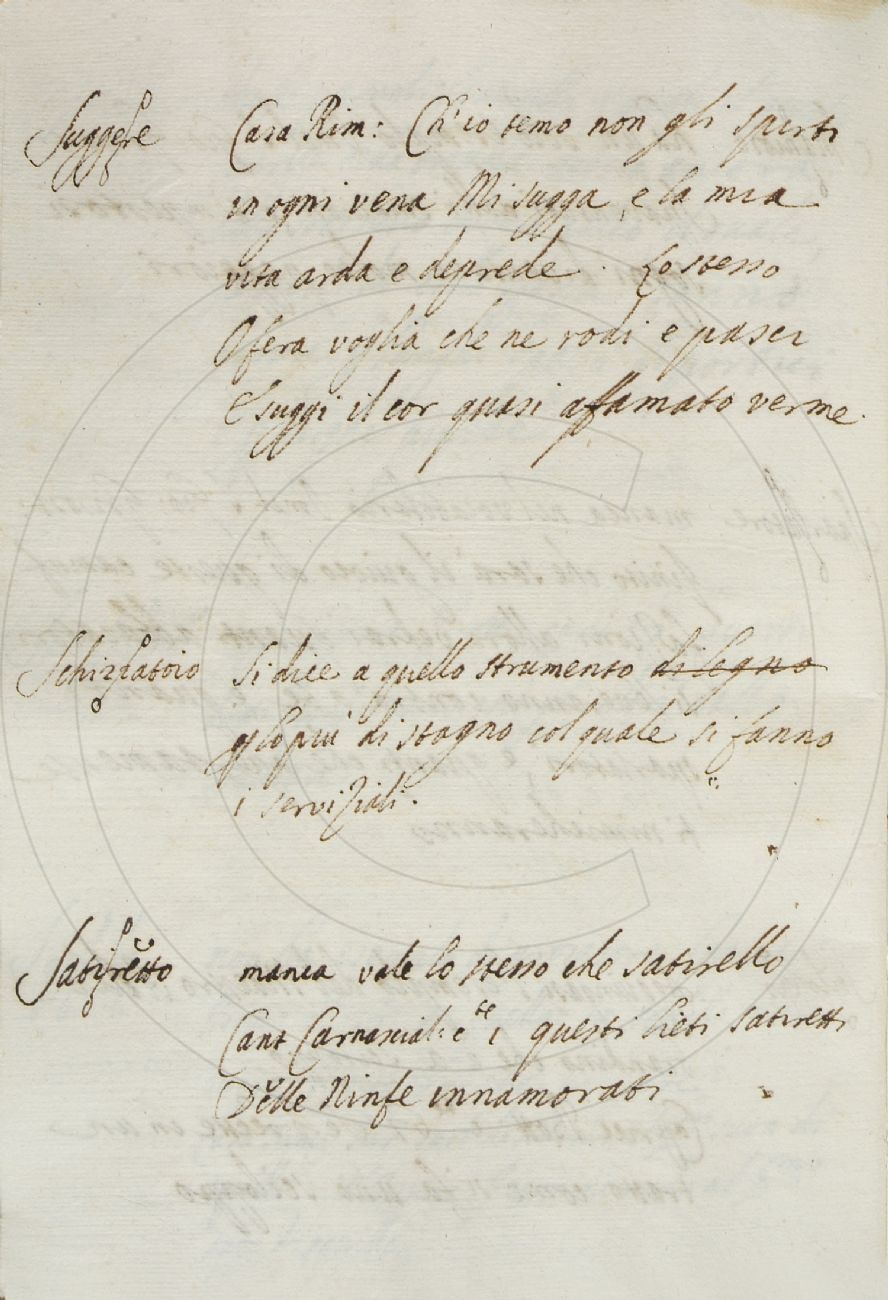 Suggere Casa Rim: Ch'io temo non gli spirti
in ogni vena Mi sugga, e la mia
vita arda e deprede. Lo stesso
O fera voglia che ne rodi e pasci
E suggi il cor quasi affamato verme.
Schizzatoio Si dice a quello strumento di legno
p lo piu di stagno col quale si fanno
i serviziali.
Satiretto manca vale lo stesso che satirello
Cant. Carnascial: e te 1 questi lieti satiretti
Delle Ninfe innamorati